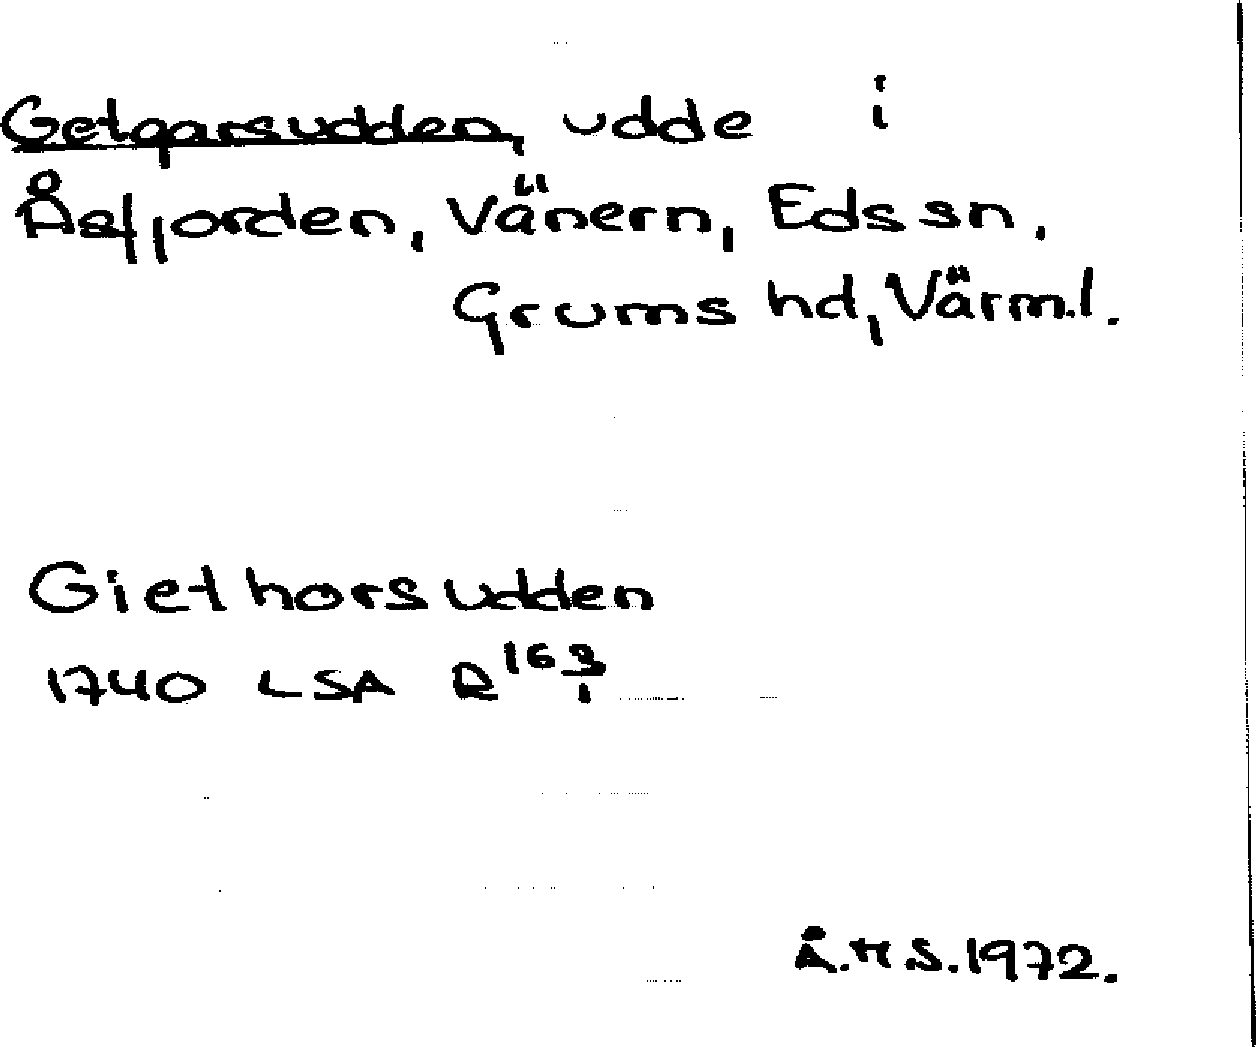 Getgarsudden, udde i
Åsfjorden, Vänern, Eds sn,
Grums hd, Värml.
Giethorsudden
1740 LSA R 16 3/1
Å.H.S. 1972.